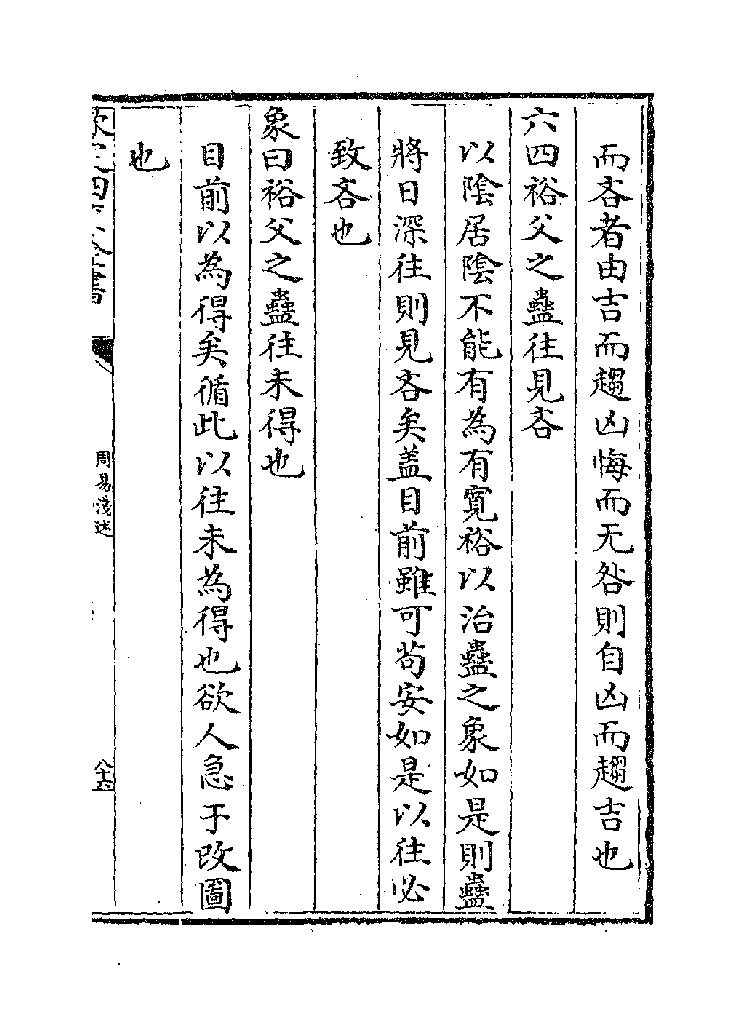 而吝者由吉而趨凶悔而无咎則自凶而趨吉也
六四裕父之蠱往見吝
以陰居陰不能有為有寛裕以治蠱之象如是則蠱
將日深往則見吝矣盖目前雖可苟安如是以往必
致吝也
象曰裕父之蠱往未得也
目前以為得矣循此以往未為得也欲人急于改圖
也
周易淺述